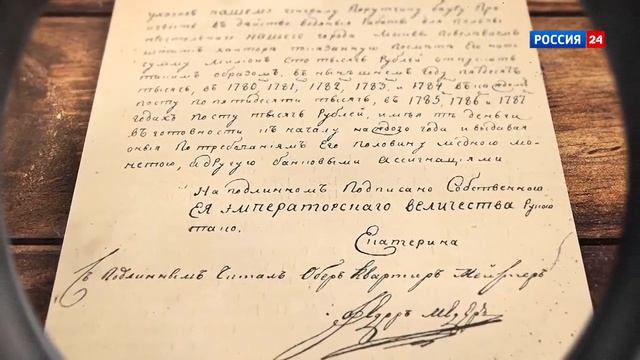 указомъ нашему Генералу Порутчику Бауру Про
известь въ дѣйство водяныя Работы для пользы
престольнаго нашего города Москвы Повелѣваемъ
сумму Милионъ Сто тысячъ Рублей отпускать
такимъ образомъ. въ нынѣшнемъ году пятдесятъ
тысячь, въ 1780, 1781, 1782, 1783, и 1784 въ каждомъ
посту по пятидесяти тысячь, въ 1785, 1786 и 1787
годахъ посту тысячь Рублей, имѣя тѣ деньги
въ готовности къ началу каждаго года и выдавая
оныя по требованiямъ Его половину мѣдною мо-
нетою, а другую банковыми ассигнацiями
На подлинномъ Подписано Собственною
ЕЯ императорскаго величества Рукою
тако.
Екатерина
Съ Подлиннымъ Читалъ Оберъ Квартиръ Мейстеръ
РОССИЯ 24